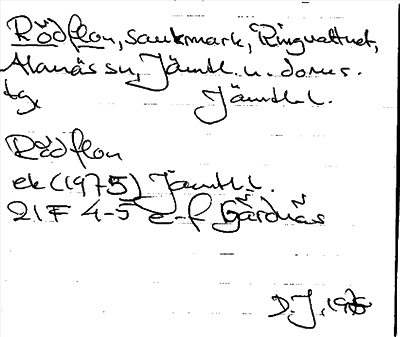 Rödflon, sankmark, Ringvattnet,
Alanäs sn, Jämtl. u. doms.
tg, Jämtl. l.
Rödflon
ek (1975) Jämtl l.
21F 4-5 e-f Gärdnäs
D.J. 1976